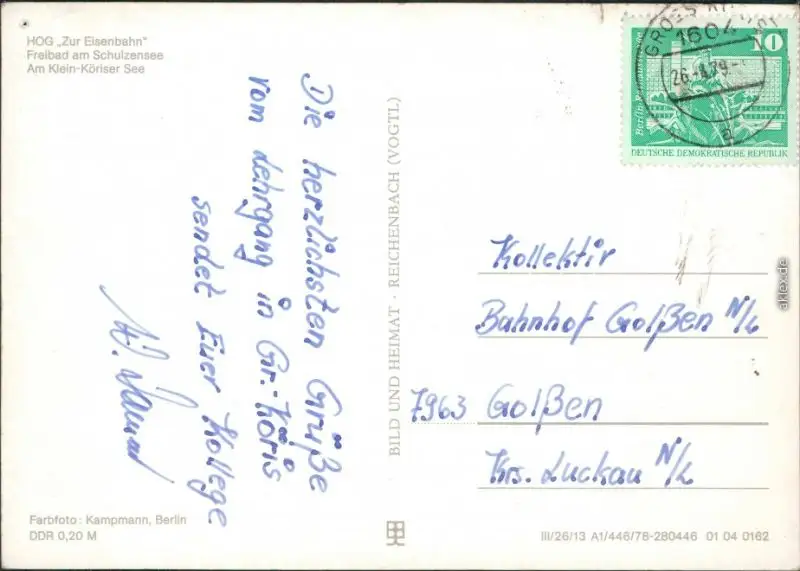 HOG „Zur Eisenbahn“
Freibad am Schulzensee
Am Klein-Köriser See
Die herzlichsten Grüße
vom Lehrgang in Gr.-Köris
sendet Euer Kollege
Farbfoto: Kampmann, Berlin
DDR 0,20 M
BILD UND HEIMAT · REICHENBACH (VOGTL)
1604
10
DEUTSCHE DEMOKRATISCHE REPUBLIK
Kollektiv
Bahnhof Golßen N/L
7963 Golßen
Krs. Luckau N/L
III/26/13 A1/446/78-280446 01 04 0162
aklex.de